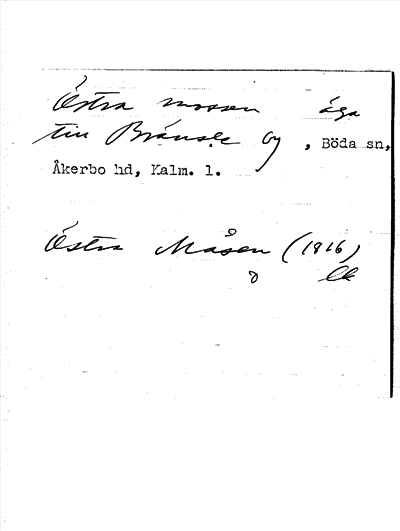 Östra mossen äga
till by , Böda sn,
Åkerbo hd, Kalm. l.
Östra Måsen (1816)
8